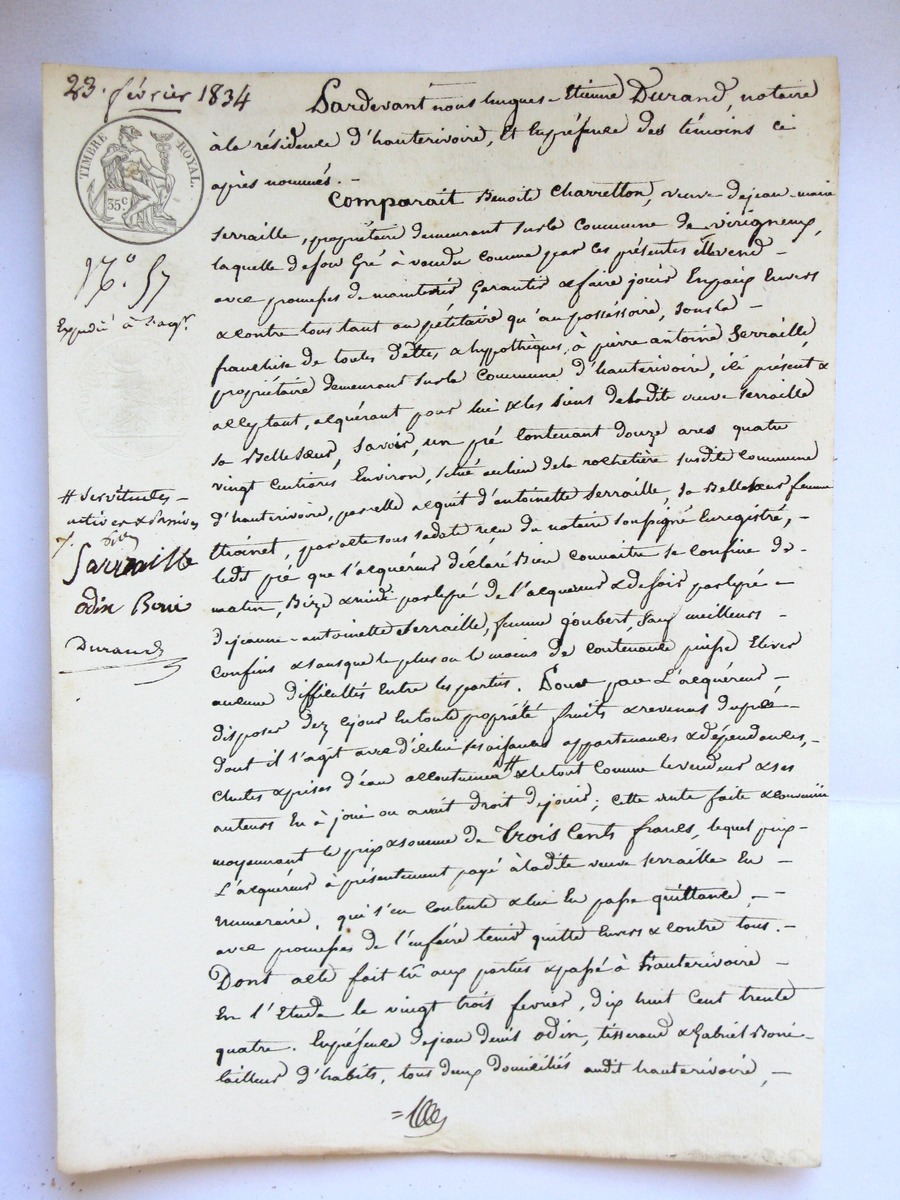 23. février 1834
TIMBRE ROYAL.
35c
N.° 57
Expédié à l'acqr.
# servitudes
actives & passives
7.
Serraille
odin Boni
Durand
Pardevant nous hugues-Etienne Durand, notaire
à la résidence d'hauterivoire, et en présence des témoins ci
après nommés. -
Comparait Benoite Charretton, veuve de jean-marie
Serraille, propriétaire demeurant sur la Commune de virigneux,
laquelle de son Gré à vendu comme par ces présentes elle vend -
avec promesses de maintenir Garantir & faire jouir En paix Envers
& contre tous tant au pétitoire qu'au possessoire, sous la -
franchise de toutes dettes & hypothèques, à pierre antoine Serraille,
propriétaire demeurant sur la Commune d'hauterivoire, ici présent &
acceptant, acquérant pour lui & les siens de ladite veuve Serraille
sa Belle sœur, Savoir, un pré Contenant douze ares quatre
vingt centiares Environ, situé au lieu de la rochetière susdite commune
d'hauterivoire, par elle acquit d'antoinette Serraille, sa Belle sœur femme
thoinet, par acte sous sa date reçu du notaire soussigné Enregistré, -
ledit pré que l'acquéreur déclaré Bien connaitre se confine de -
matin, Bize & midi par le pré de l'acquéreur & de soir par le pré -
de jeanne-antoinette Serraille, femme goubert, sauf meilleurs -
confins & sans que le plus ou le moins de contenance puisse Elever
aucune difficultés Entre les parties. Pour par L'acquéreur -
disposer dez ce jour En toute propriété fruits & revenus du pré -
dont il s'agit avec d'icelui ses aisances appartenances & dépendances, -
chutes & prises d'eau accoutumées # & le tout Comme le vendeur & ses
auteurs En à joui ou avait droit de jouir; cette vente faite & convenue
moyennant le prix & somme de Trois Cents francs, lequel prix -
L'acquéreur à présentement payé à ladite veuve Serraille En -
numéraire, qui s'en contente & lui En passe quittance, -
avec promesses de l'en faire tenir quitte Envers & contre tous. -
Dont acte fait lû aux parties & passé à hauterivoire -
En l'Etude le vingt trois fevrier, dix huit Cent trente
quatre. En présence de jean denis odin, tisserand & Gabriel Boni -
tailleur d'habits, tous deux domiciliés audit hauterivoire, -